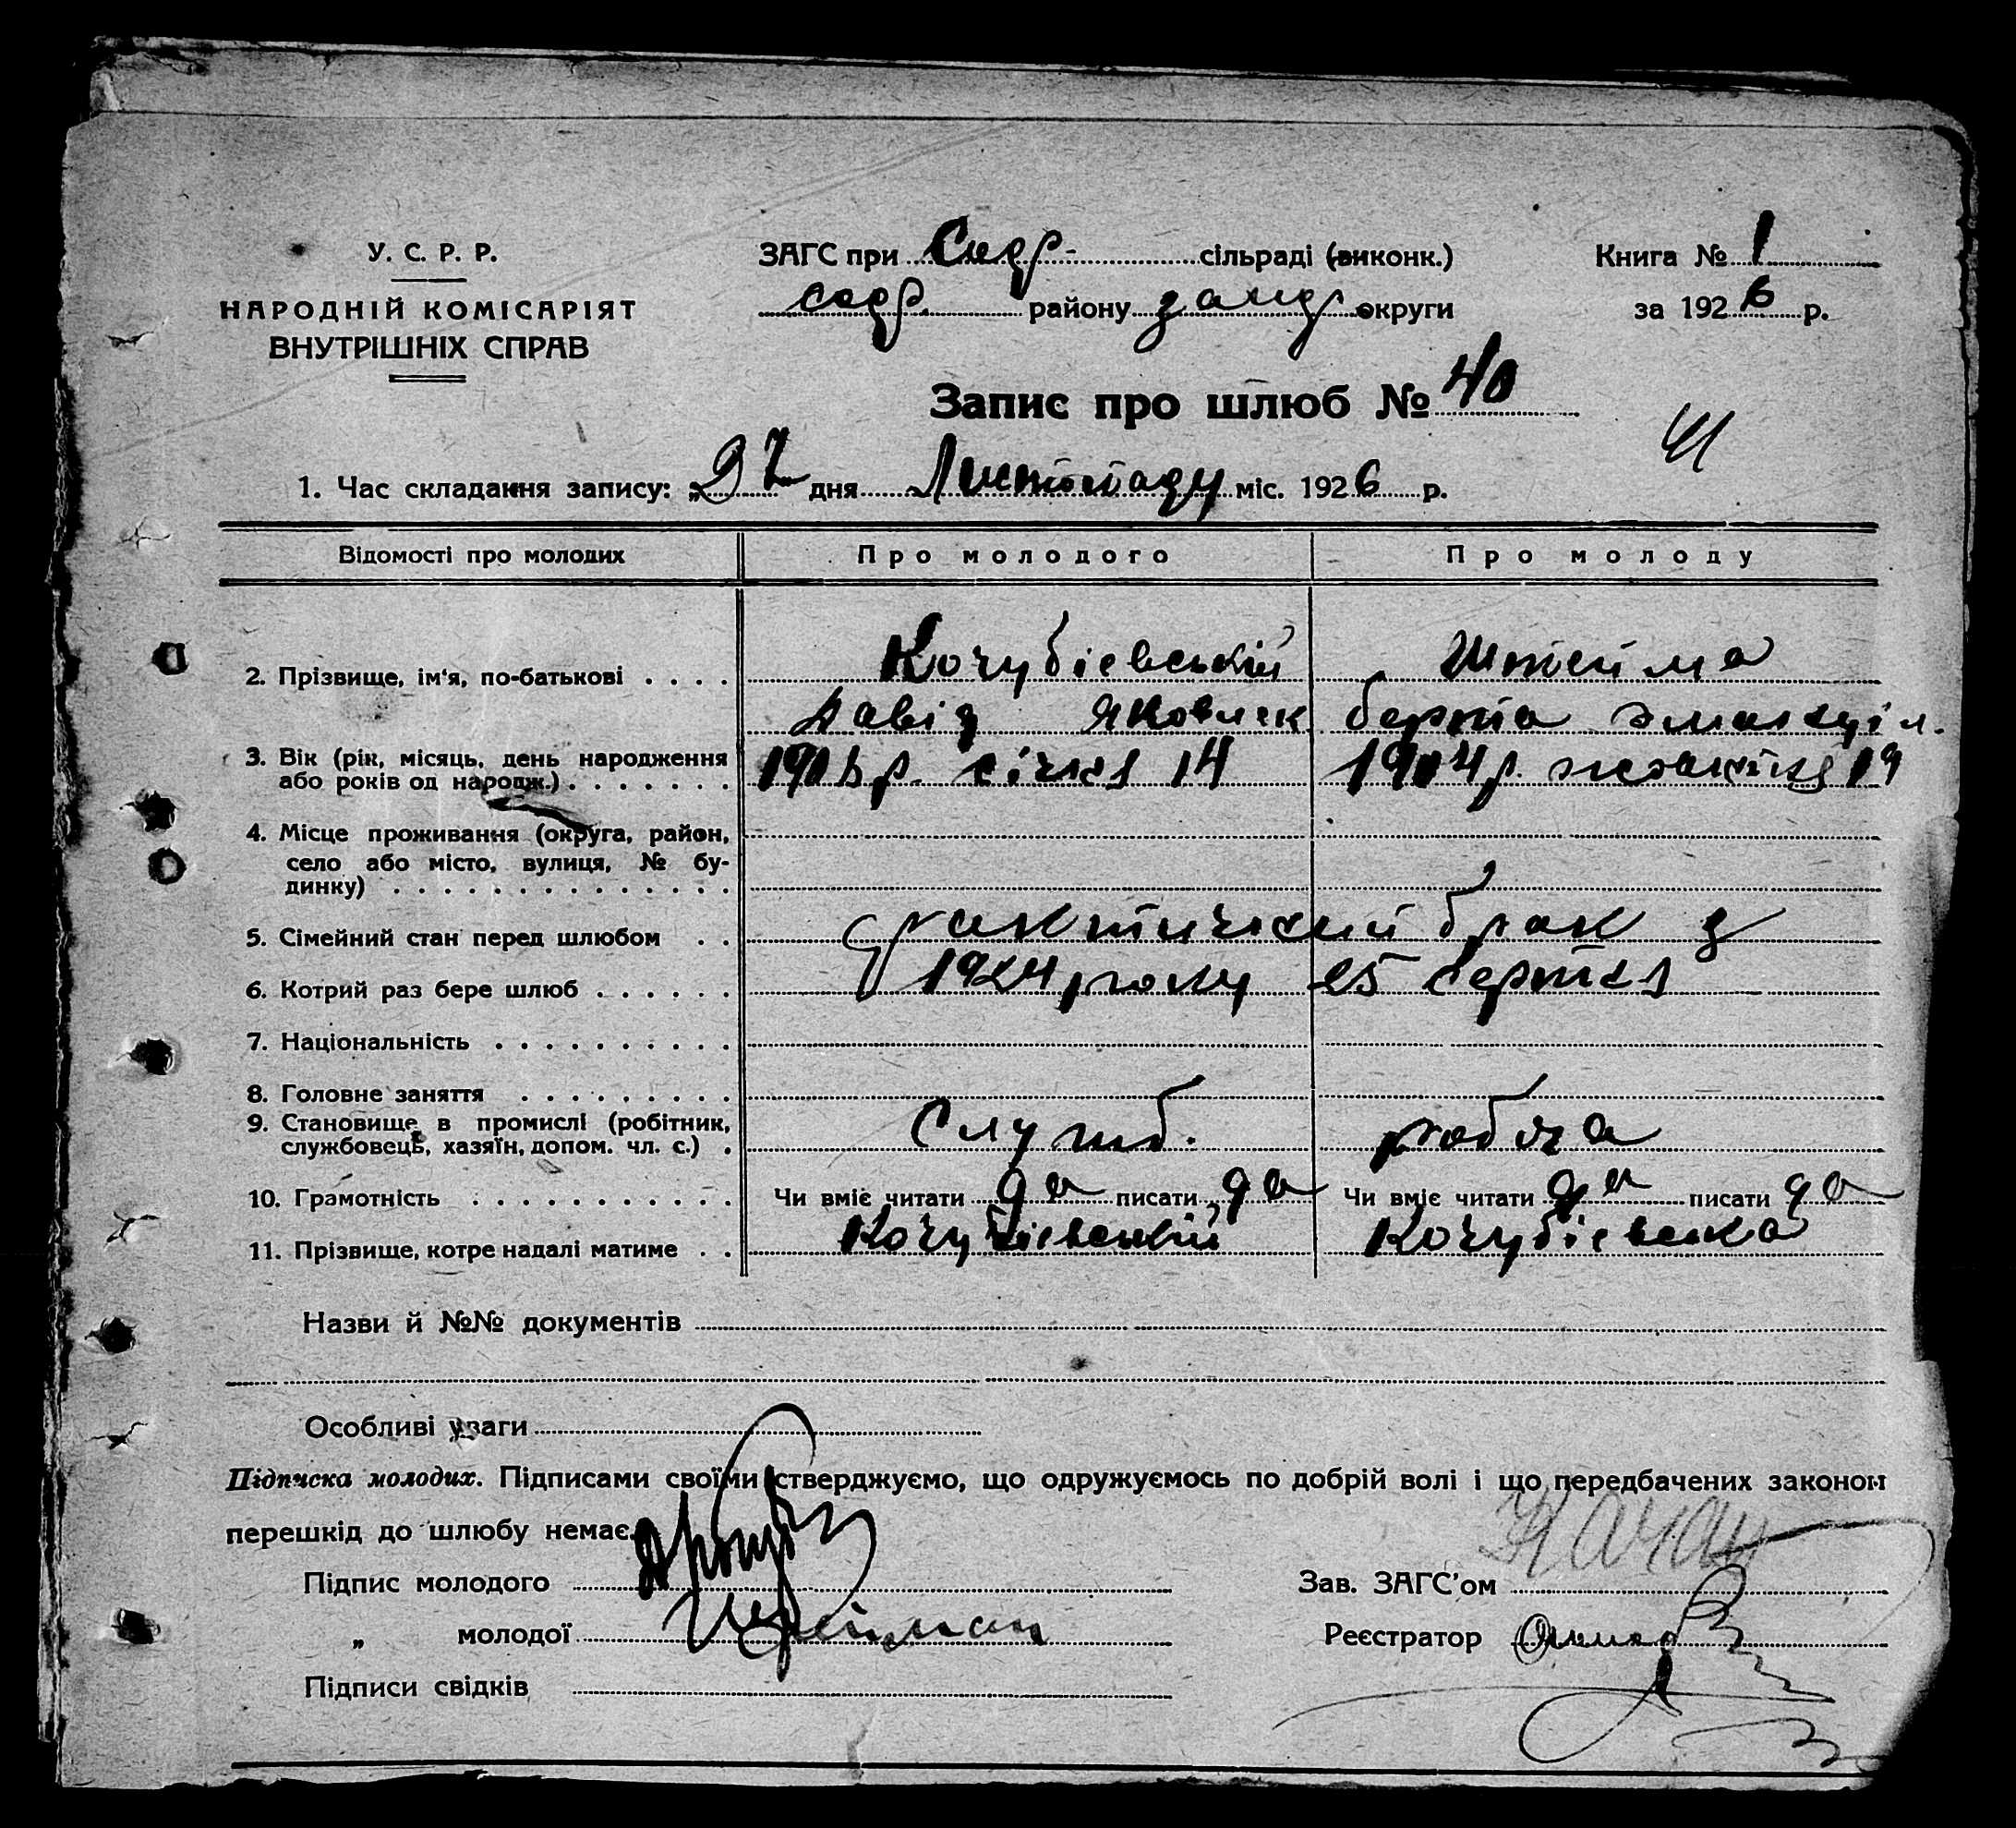 У. С. Р. Р.
НАРОДНІЙ КОМІСАРІЯТ
ВНУТРІШНІХ СПРАВ
ЗАГС при сільраді (виконк.)
району округи
Книга № 1
за 1926 р.
Запис про шлюб № 40
41
1. Час складання запису: „27 дня Листопаду міс. 1926 р.
Відомості про молодих Про молодого Про молоду
2. Прізвище, ім'я, по-батькові . . . . Кочубієвській
Давід Яковлев берта
3. Вік (рік, місяць, день народження
або років од народж.) . . . . . . . січня 14 1904 р. жовтня 19
4. Місце проживання (округа, район,
село або місто, вулиця, № бу-
динку) . . . . . . . . . . . . . .
5. Сімейний стан перед шлюбом . . фактический брак з
6. Котрий раз бере шлюб . . . . . . 1924 року 25 серпня
7. Національність . . . . . . . . . .
8. Головне заняття . . . . . . . . .
9. Становище в промислі (робітник,
службовець, хазяїн, допом. чл. с.) . Служб.
10. Грамотність . . . . . . . . . . . Чи вміє читати да писати да Чи вміє читати да писати да
11. Прізвище, котре надалі матиме . . Кочубієвській Кочубієвська
Назви й №№ документів
Особливі уваги
Підписка молодих. Підписами своїми стверджуємо, що одружуємось по добрій волі і що передбачених законом
перешкід до шлюбу немає.
Підпис молодого
Зав. ЗАГС'ом
„ молодої
Реєстратор
Підписи свідків